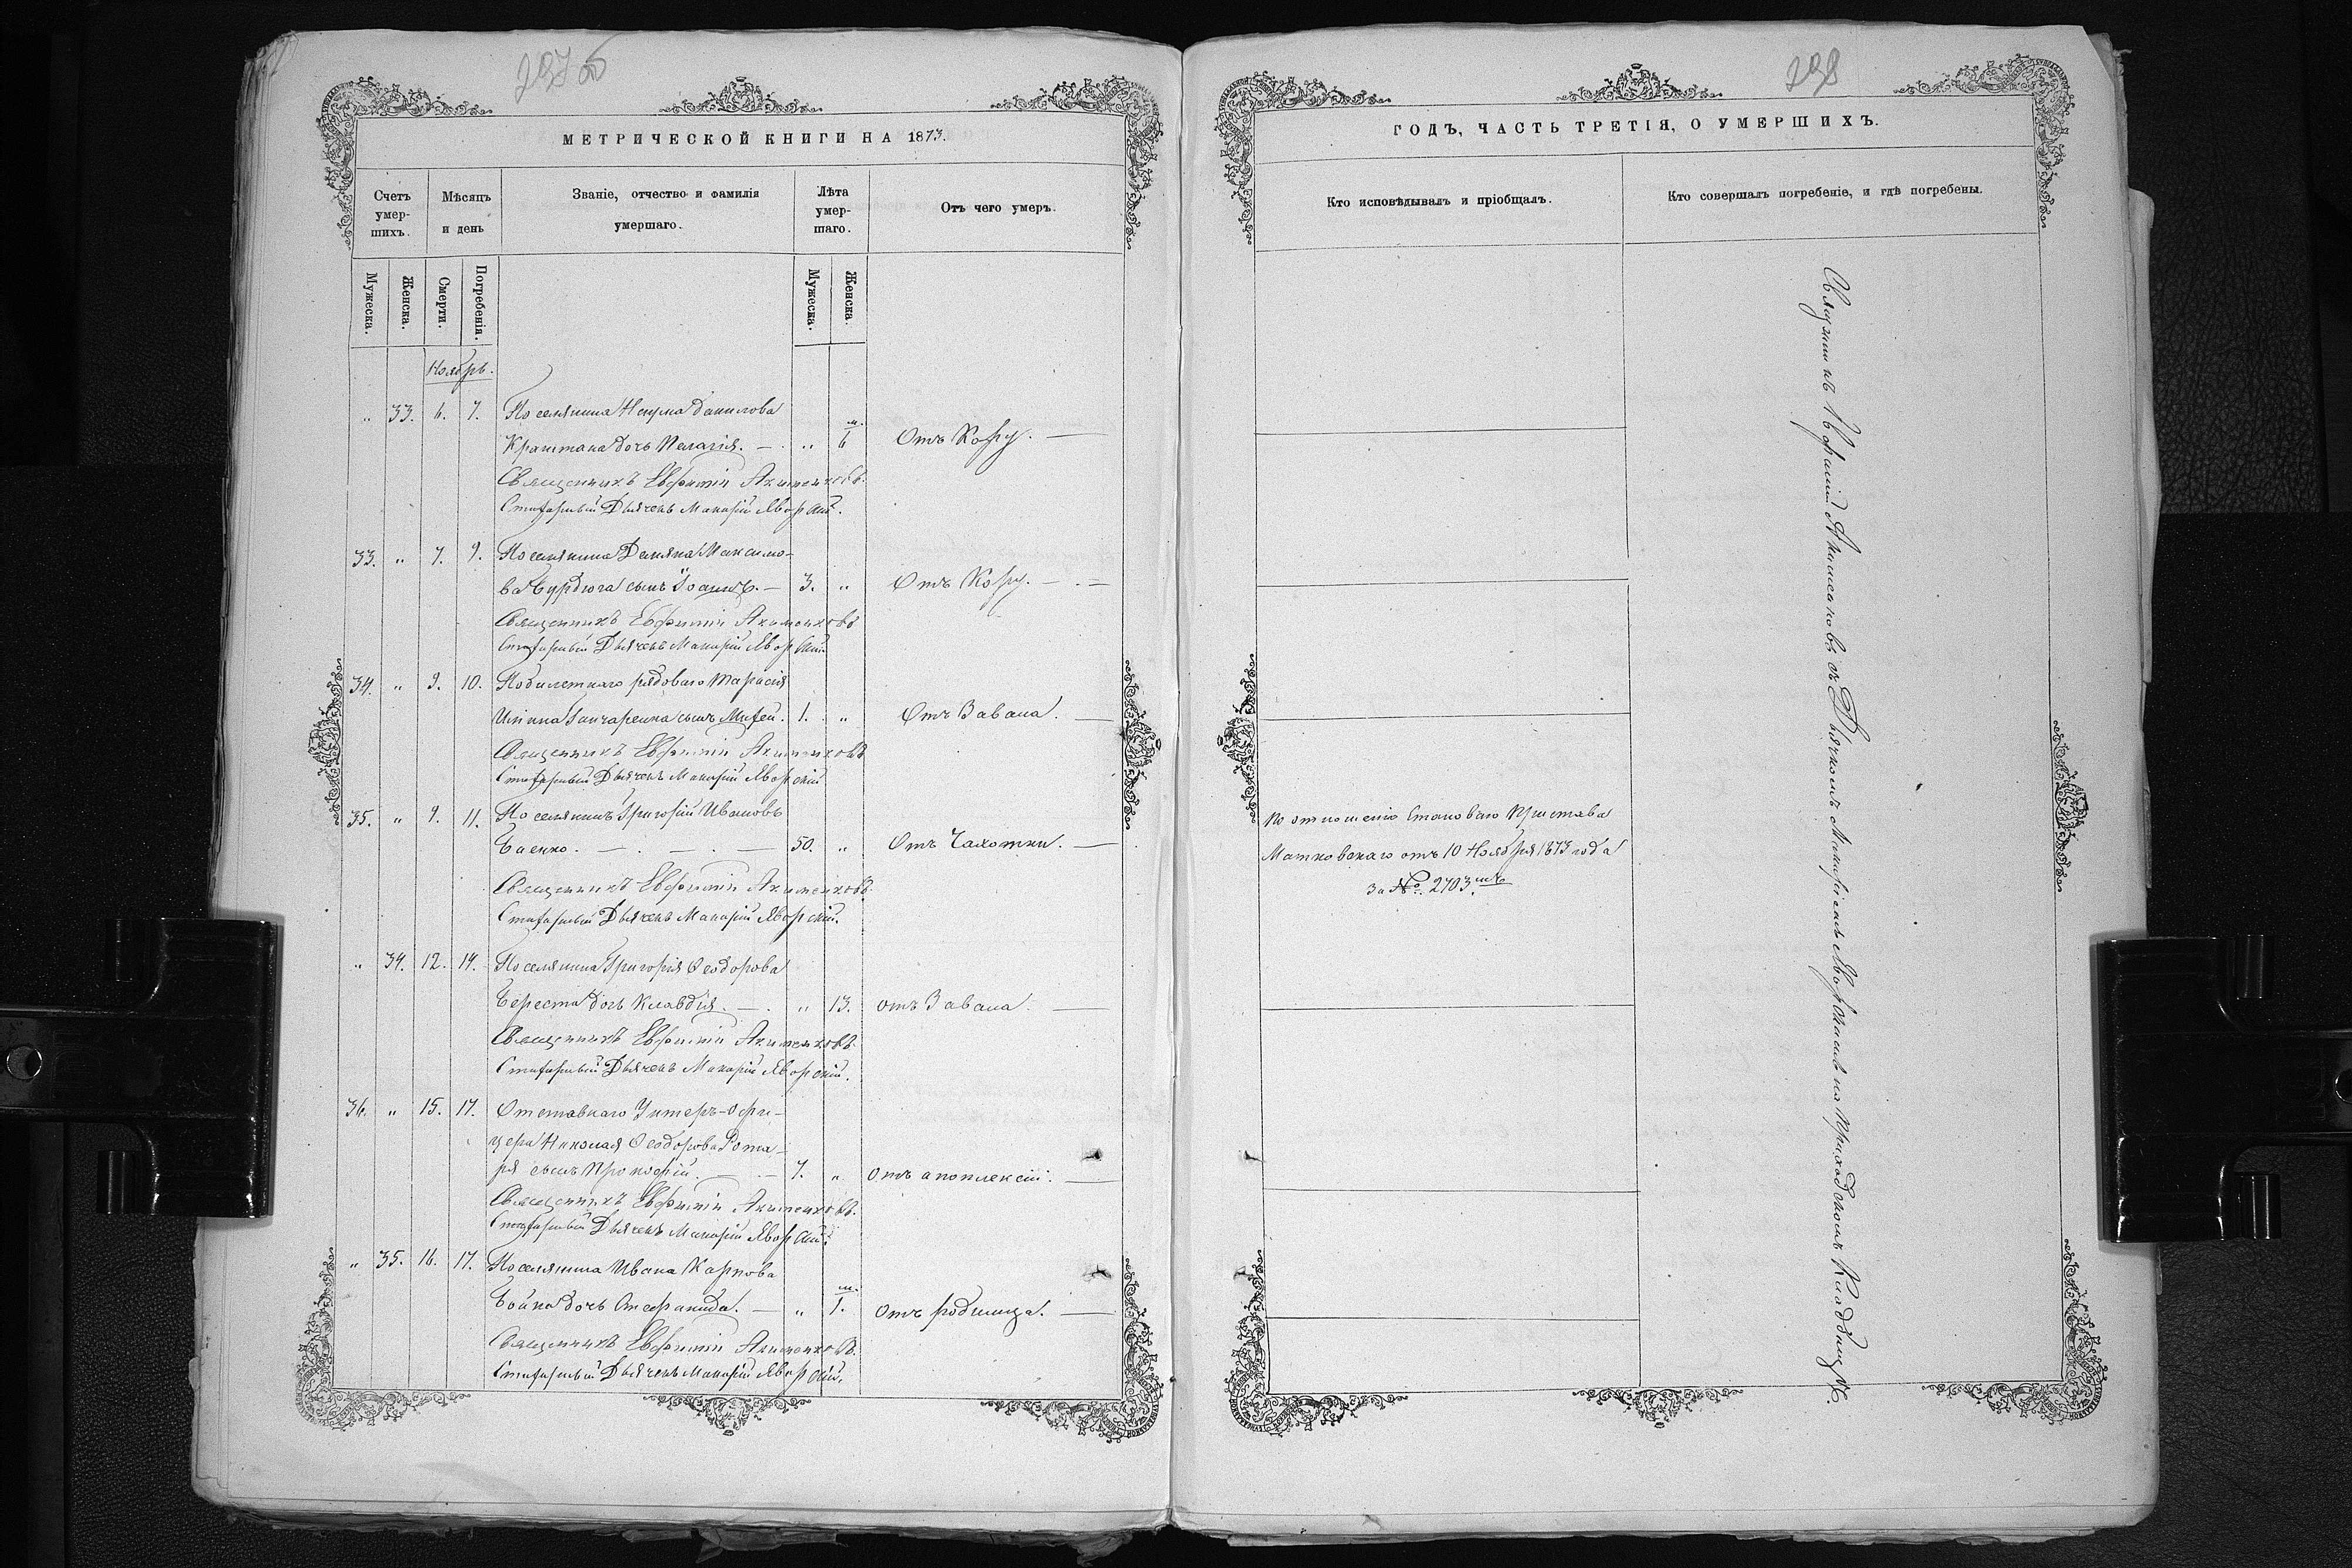 297 об
МЕТРИЧЕСКОЙ КНИГИ НА 1873.
Счетъ умер-шихъ.
Мѣсяцъ и день
Званіе, отчество и фамилія умершаго.
Лѣта умер-шаго.
Отъ чего умеръ.
Мужеска.
Женска.
Смерти.
Погребенія.
Мужеска.
Женска.
Ноябрь.
„ 33. 6. 7. Поселянина Наума Данилова
Краштана дочь Пелагія. — „ м. 6 Отъ Кору. —
Священникъ Евфимій Акименковъ.
Стихарный Дьячекъ Макарій Яворскій.
33. „ 7. 9. Поселянина Демяна Максимо-
ва Бурдюга сынъ Іоаннъ. — 3. „ Отъ Кору. —
Священникъ Евфимій Акименковъ
Стихарный Дьячекъ Макарій Яворскій
34. „ 9. 10. рядоваго Тарасія
Гончаренка сынъ 1. „ Отъ Завала. —
Священникъ Евфимій Акименковъ
Стихарный Дьячекъ Макарій Яворскій
35. „ 9. 11. Поселянинъ Григорій Ивановъ
Баенко. — 50. „ Отъ Чахотки. —
Священникъ Евфимій Акименковъ.
Стихарный Дьячекъ Макарій Яворскій.
„ 34. 12. 14. Поселянина Григорія Ѳеодорова
Береста дочь Клавдія. — „ 13. отъ Завала. —
Священникъ Евфимій Акименковъ.
Стихарный Дьячекъ Макарій Яворскій.
36. „ 15. 17. Отставнаго Унтеръ-Офи-
цера Николая Ѳеодорова Рота-
ря сынъ Прокофій. — 7. „ отъ апоплексіи. —
Священникъ Евфимій Акименковъ.
Стихарный Дьячекъ Макарій Яворскій.
„ 35. 16. 17. Поселянина Ивана Карпова
Бойка дочь Стефанида. — „ м. 1. отъ родимца. —
Священникъ Евфимій Акименковъ.
Стихарный Дьячекъ Макарій Яворскій.
298
ГОДЪ, ЧАСТЬ ТРЕТІЯ, О УМЕРШИХЪ.
Кто исповѣдывалъ и пріобщалъ.
Кто совершалъ погребеніе, и гдѣ погребены.
По отношенію Становаго Пристава
Матковскаго отъ 10 Ноября 1873 года
За №. 2703.мъ
Священникъ Евфимій Акименковъ съ Дьячкомъ Макаріемъ Яворскимъ на Приходскомъ Кладбищѣ.